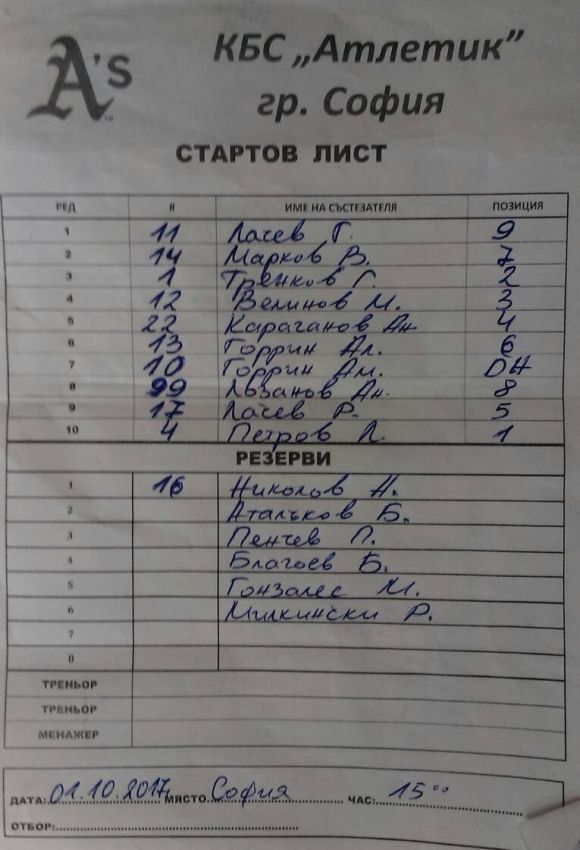 A's
КБС „Атлетик”
гр. София
СТАРТОВ ЛИСТ
РЕД # ИМЕ НА СЪСТЕЗАТЕЛЯ ПОЗИЦИЯ
1 11 Лачев Г. 9
2 14 Марков В. 7
3 1 Тренков Г. 2
4 12 Велинов М. 3
5 22 Караганов Ан. 4
6 13 Горрин Ал. 6
7 10 Горрин Ам. DH
8 99 Лозанов Ан. 8
9 17 Лачев Р. 5
10 4 Петров Л. 1
РЕЗЕРВИ
1 16 Николов Н.
2 Аталъков Б.
3 Пенчев П.
4 Благоев Б.
5 Гонзалес М.
6 Милкински Р.
7
8
ТРЕНЬОР
ТРЕНЬОР
МЕНАЖЕР
ДАТА: 01.10.2017 МЯСТО София ЧАС: 15 00
ОТБОР: